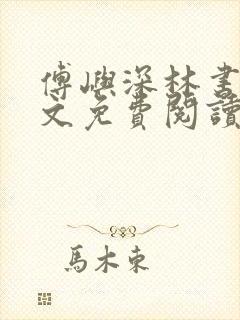 傅嶼深林書
文免費閱讀
馬木東